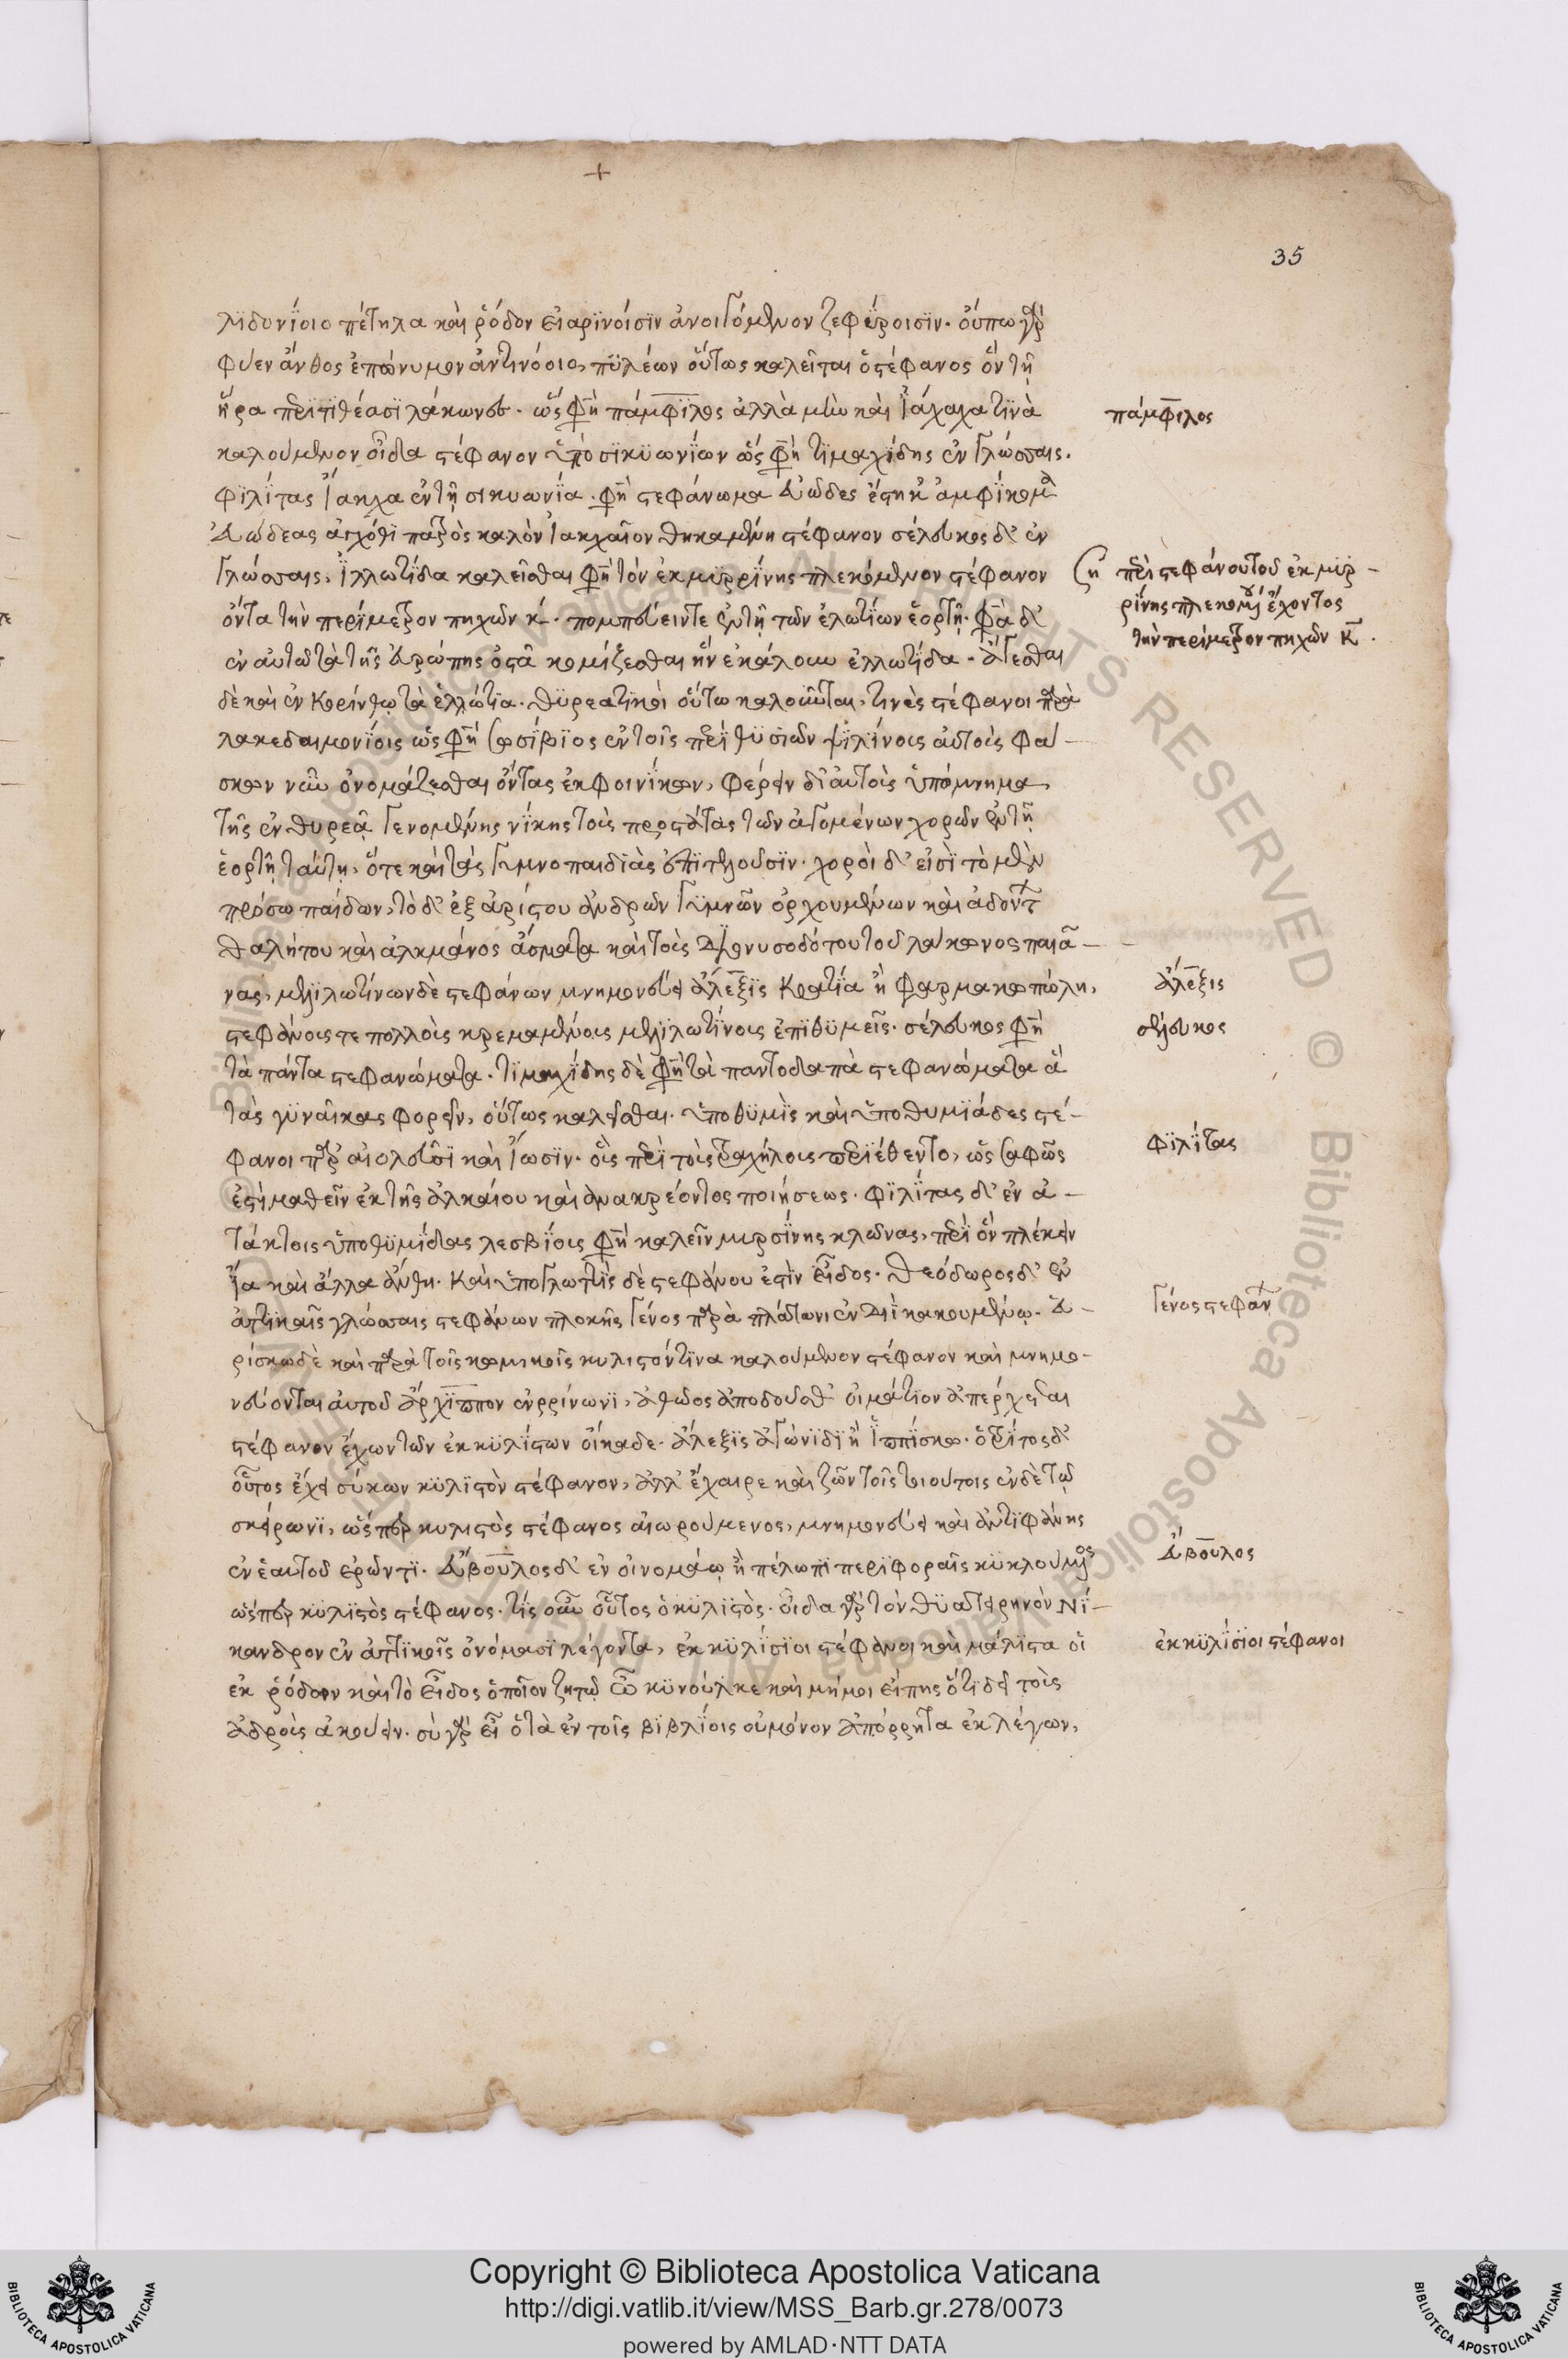 35
λϊδονΐοιο πέτηλα καὶ ῥόδον εἰαρϊνοῖσϊν ἀνοιγόμενον ζεφΰροισϊν. οὔπω γὰρ
φύεν ἄνθος ἐπώνυμον ἀντινόοιο, πϋλέων οὕτως καλεῖται ὁ στέφανος ὃν τῇ
ἥρα περϊτϊθέασϊ λάκωνες. ὥς φησϊ πάμφϊλος ἀλλὰ μὴν καὶ ἰάχαχα τϊνὰ
καλούμενον οἶδα στέφανον ὑπὸ σϊκϋωνΐων ὥς φησι τϊμαχΐδης ἐν γλώσσαις.
φϊλΐτας ἴακχα ἐν τῇ σικυωνΐα. φησὶ στεφάνωμα εὐῶδες
εὐώδεας ἀγχόθϊ πατρὸς καλὸν ἰακχαῖον θηκαμένη στέφανον σέλευκος δ' ἐν
γλώσσαις, ἐλλωτΐδα καλεῖσθαι φησὶ τὸν ἐκ μϋρρΐνης πλεκόμενον στέφανον
ὄντα τὴν περίμετρον πηχῶν κ. πομπεύειν τε ἐν τῇ τῶν ἑλωτΐων ἑορτῇ. φασὶ δ'
ἐν αὐτῷ τὰ τῆς εὐρώπης ὀστᾶ κομίζεσθαι ἣν ἐκάλουν ἐλλωτΐδα. ἄγεσθαι
δὲ καὶ ἐν κορίνθῳ τὰ ἑλλώτϊα. θϋρεατϊκοὶ οὕτω καλοῦνται, τινὲς στέφανοι παρὰ
λακεδαιμονΐοις ὥς φησι σωσΐβϊος ἐν τοῖς περϊ θϋσιῶν ψϊλΐνοις αὐτοὺς φά-
σκων νῦν ὀνομάζεσθαι ὄντας ἐκ φοινΐκων, φέρειν δὲ αὐτοὺς ὑπόμνημα,
τῆς ἐν θυρέᾳ γενομένης νΐκης τοὺς προστάτας τῶν ἀγομένων χορῶν ἐν τῇ
ἑορτῇ ταύτη, ὅτε καὶ τὰς γυμνοπαιδϊὰς ἐπϊτελοῦσϊν. χοροὶ δ' εἰσὶ τὸ μὲν
πρόσω παίδων, τὸ δ' ἐξ ἀρίστου ἀνδρῶν γϋμνῶν ὀρχουμένων καὶ ἀδόντων
θαλήτου καὶ ἀλκμάνος ἄσματα καὶ τοὺς διονυσοδότου τοῦ λάκωνος παιᾶ-
νας, μελϊλωτίνων δὲ στεφάνων μνημονεύει ἄλεξϊς κρατΐα ἢ φαρμακοπώλη,
στεφάνους τε πολλοὺς κρεμαμένους μελϊλωτΐνους ἐπϊθϋμεῖς. σέλευκος φησὶ
τὰ πάντα στεφανώματα. τϊμαχίδης δὲ φησὶ τὰ παντοδαπὰ στεφανώματα ἃ
τὰς γϋναῖκας φορεῖν, οὕτως καλεῖσθαι. ὑποθϋμϊς καὶ ὑποθυμϊάδες στέ-
φανοι παρ' αἰολεῦσϊ καὶ ἴωσϊν. οὓς περϊ τοὺς τραχήλους περϊέθεντο, ὡς σαφῶς
ἐστι μαθεῖν ἐκ τῆς ἀλκαίου καὶ ἀνακρέοντος ποιήσεως. φϊλΐτας δ' ἐν ἀ-
τάκτοις ὑποθϋμΐδας λεσβΐοις φησὶ καλεῖν μυρσΐνης κλῶνας, περϊ ὃν πλέκειν
ἴα καὶ ἄλλα ἄνθη. καὶ ὑπογλωττὶς δὲ στεφάνου ἐστὶν εἶδος. θεόδωρος δ' ἐν
ἀττϊκαῖς γλώσσαις στεφάνων πλοκῆς γένος παρὰ πλάτωνι ἐν διῒ κακουμένῳ. εὑ-
ρίσκω δὲ καὶ παρὰ τοῖς κωμικοῖς κυλιστόν τϊνα καλούμενον στέφανον καὶ μνημο-
νεύονται αὐτοῦ ἄρχϊππον ἐν ῥΐνωνϊ, ἀθῶος ἀποδοὺς θοιμάτϊον ἀπέρχεται
στέφανον ἔχων τῶν ἐκκϋλΐστων οἴκαδε. ἄλεξϊς ἀγωνΐδϊ ἢ ἱππΐσκῳ. ὁ τρΐτος δ'
οὗτος ἔχει σύκων κϋλϊστὸν στέφανον, ἀλλ' ἔχαιρε καὶ ζῶν τοῖς τοιούτοις ἐν δὲ τῷ
σκείρωνϊ, ὥσπερ κυλιστὸς στέφανος αἰωρούμενος, μνημονεύει καὶ ἀντϊφάνης
ἐν ἑαυτοῦ ἐρῶντϊ. εὔβουλος δ' ἐν οἰνομάῳ ἢ πέλοπϊ περϊφοραῖς κϋκλούμενος
ὥσπερ κϋλϊστὸς στέφανος. τίς οὖν οὗτος ὁ κϋλϊστὸς. οἶδα γὰρ τὸν θϋατειρηνὸν νΐ-
κανδρον ἐν ἀττϊκοῖς ὀνόμασϊ λέγοντα, ἐκκϋλΐσϊοι στέφανοι καὶ μάλϊστα οἱ
ἐκ ῥόδων καὶ τὸ εἶδος ὁποῖον ζητῶ ὦ κϋνούλκε καὶ μήμοι εἴπης ὅτϊ δεῖ τοὺς
ἁδροὺς ἀκούειν. σὺ γὰρ εἶ ὁ τὰ ἐν τοῖς βϊβλΐοις οὐ μόνον ἀπόρρητα ἐκλέγων,
πάμφιλος
ση περὶ στεφάνου τοῦ ἐκ μϋρ-
ρΐνης πλεκομένου ἔχοντος
τὴν περίμετρον πηχῶν κ.
ἄλεξις
σέλευκος
φϊλΐτας
γένος στεφάνων
εὔβουλος
ἐκκϋλΐσϊοι στέφανοι
Copyright © Biblioteca Apostolica Vaticana
http://digi.vatlib.it/view/MSS_Barb.gr.278/0073
powered by AMLAD·NTT DATA
BIBLIOTECA APOSTOLICA VATICANA
BIBLIOTECA APOSTOLICA VATICANA